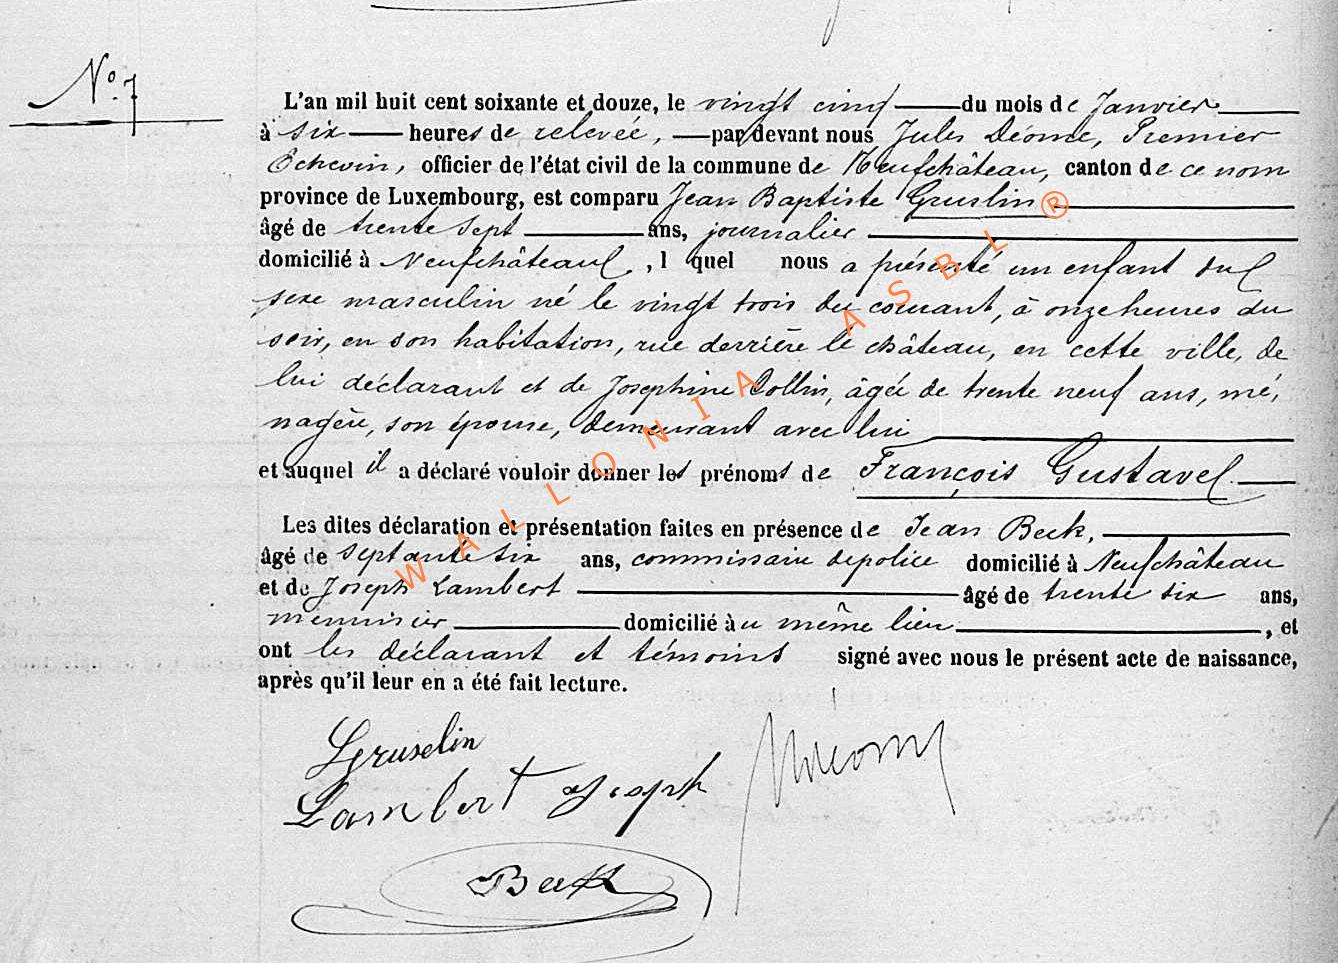 N° 7
L'an mil huit cent soixante et douze, le vingt cinq du mois de Janvier
à six heures de relevée, par devant nous Jules Déome, Premier
Echevin, officier de l'état civil de la commune de Neufchâteau, canton de ce nom
province de Luxembourg, est comparu Jean Baptiste Gruslin
âgé de trente sept ans, journalier
domicilié à Neufchâteau, l quel nous a présenté un enfant du
sexe masculin né le vingt trois du courant, à onze heures du
soir, en son habitation, rue derrière le château, en cette ville, de
lui déclarant et de Josephine Collin, âgée de trente neuf ans, mé,
nagère, son épouse, demeurant avec lui
et auquel il a déclaré vouloir donner les prénoms de François Gustave
Les dites déclaration et présentation faites en présence de Jean Beck,
âgé de septante six ans, commissaire de police domicilié à Neufchâteau
et de Joseph Lambert âgé de trente six ans,
menuisier domicilié au même lieu, et
ont les déclarant et témoins signé avec nous le présent acte de naissance,
après qu'il leur en a été fait lecture.
Gruselin
Lambert Joseph
Beck
WALLONIA ASBL ®